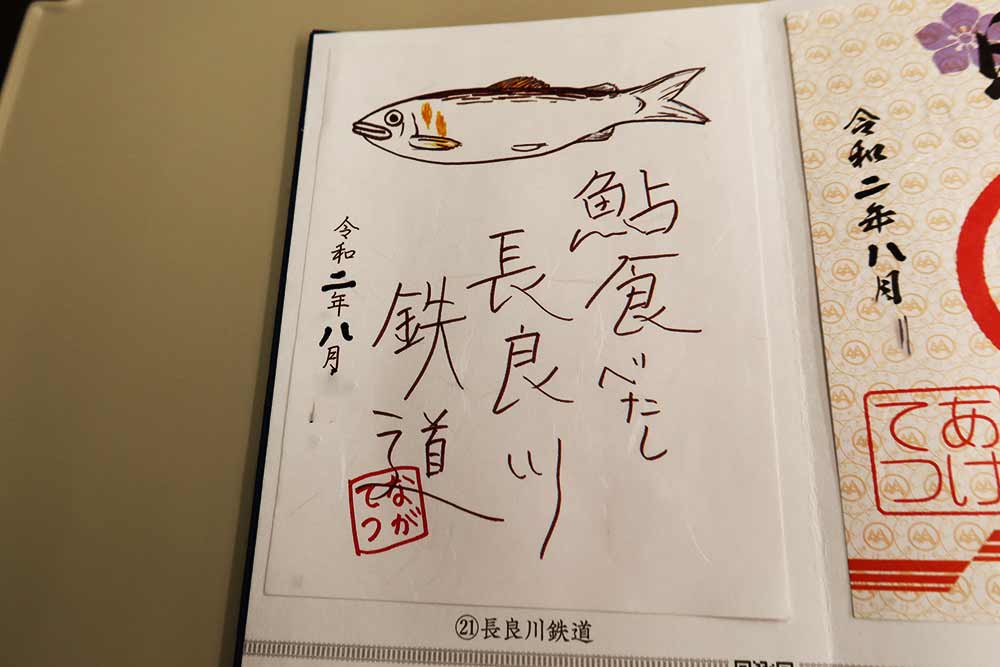 鮎食べたし
長良川
鉄道
令和二年八月
ながてつ
㉑長良川鉄道
令和二年八月
あけ
てつ